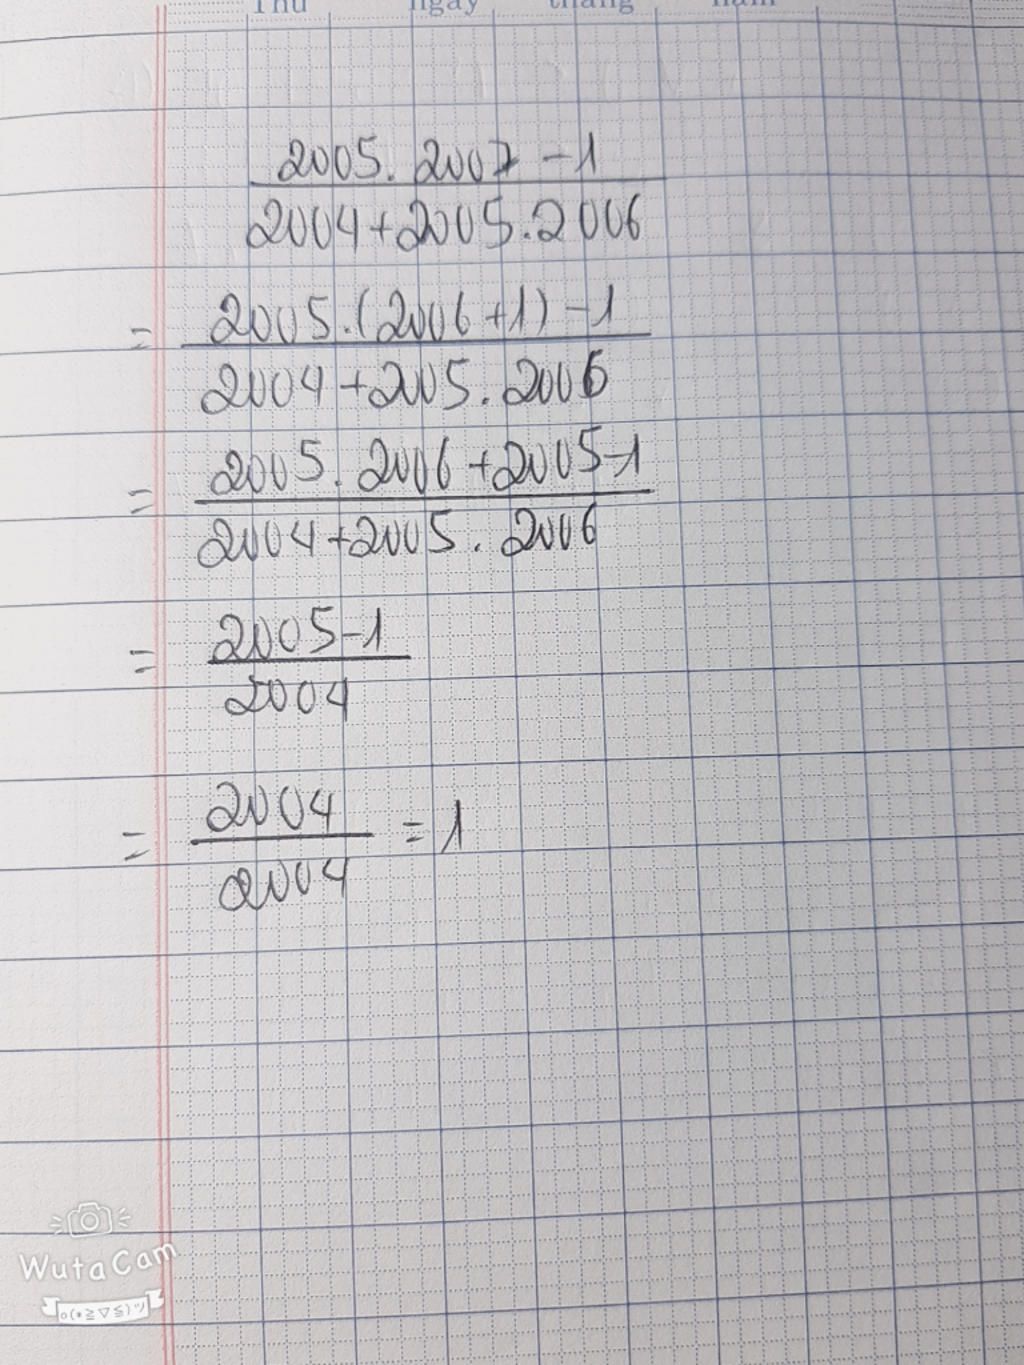 Thứ ngày tháng năm
2005. 2007 - 1
2004 + 2005.2006
= 2005.(2006 + 1) - 1
2004 + 2005. 2006
= 2005. 2006 + 2005 - 1
2004 + 2005. 2006
= 2005 - 1
2004
= 2004 = 1
2004
WutaCam
o(*≧▽≦)ツ